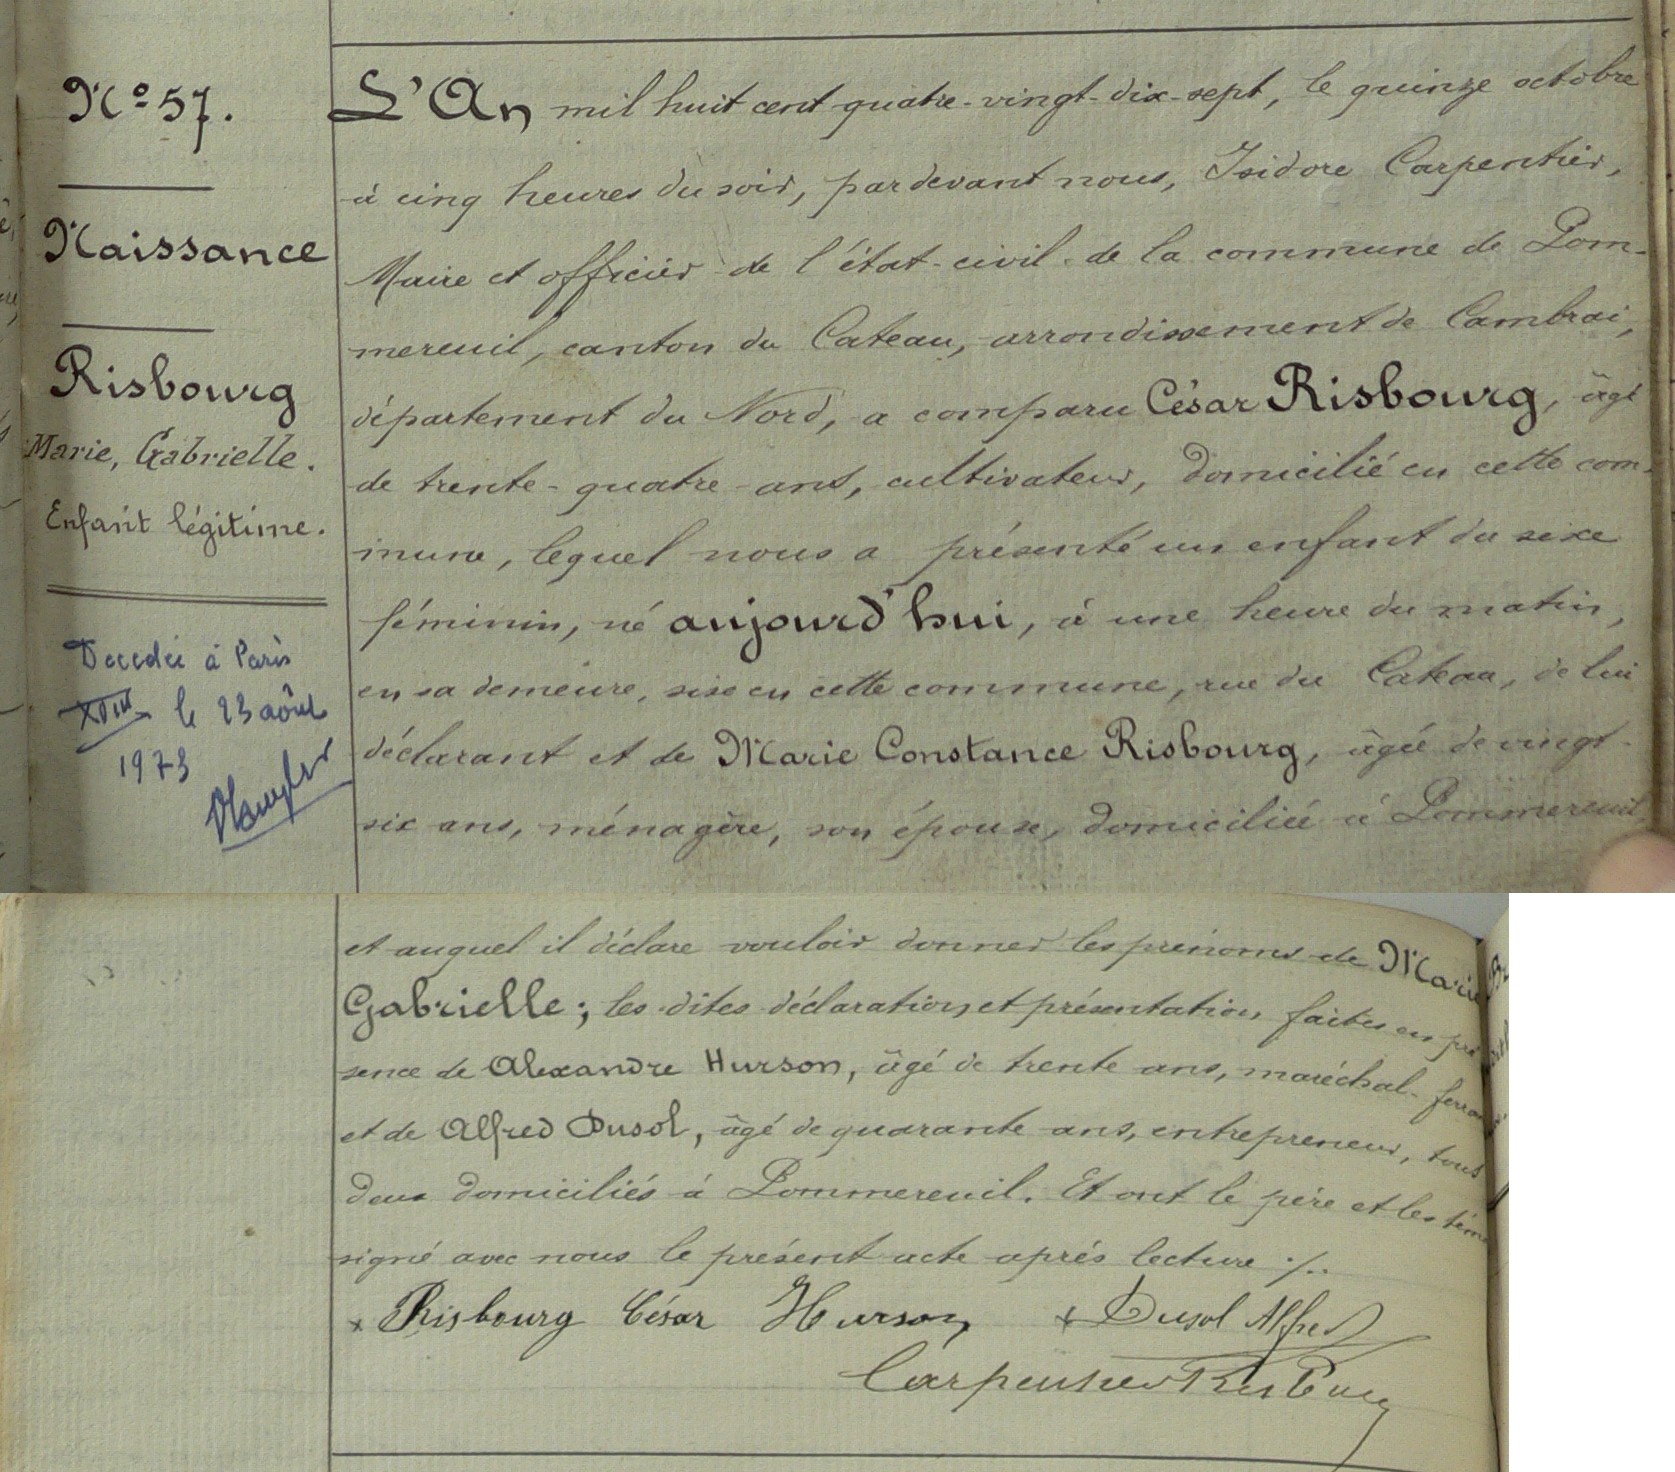 N° 57.
Naissance
Risbourg
Marie, Gabrielle.
Enfant légitime.
Décédée à Paris
XVIII le 23 août
1973
L'An mil huit cent quatre-vingt-dix-sept, le quinze octobre
à cinq heures du soir, pardevant nous, Isidore Carpentier,
Maire et officier de l'état-civil de la commune de Pom-
mereuil, canton du Cateau, arrondissement de Cambrai,
département du Nord, a comparu César Risbourg, âgé
de trente-quatre ans, cultivateur, domicilié en cette com-
mune, lequel nous a présenté un enfant du sexe
féminin, né aujourd'hui, à une heure du matin,
en sa demeure, sise en cette commune, rue du Cateau, de lui
déclarant et de Marie Constance Risbourg, âgée de vingt-
six ans, ménagère, son épouse, domiciliée à Pommereuil,
et auquel il déclare vouloir donner les prénoms de Marie
Gabrielle; les dites déclaration et présentation faites en pré
sence de Alexandre Hurson, âgé de trente ans, maréchal-ferrant
et de Alfred Dusol, âgé de quarante ans, entrepreneur, tous
deux domiciliés à Pommereuil. Et ont le père et les tém
signé avec nous le présent acte après lecture ./.
x Risbourg César Hurson x Dusol Alfred
Carpentier Risbourg